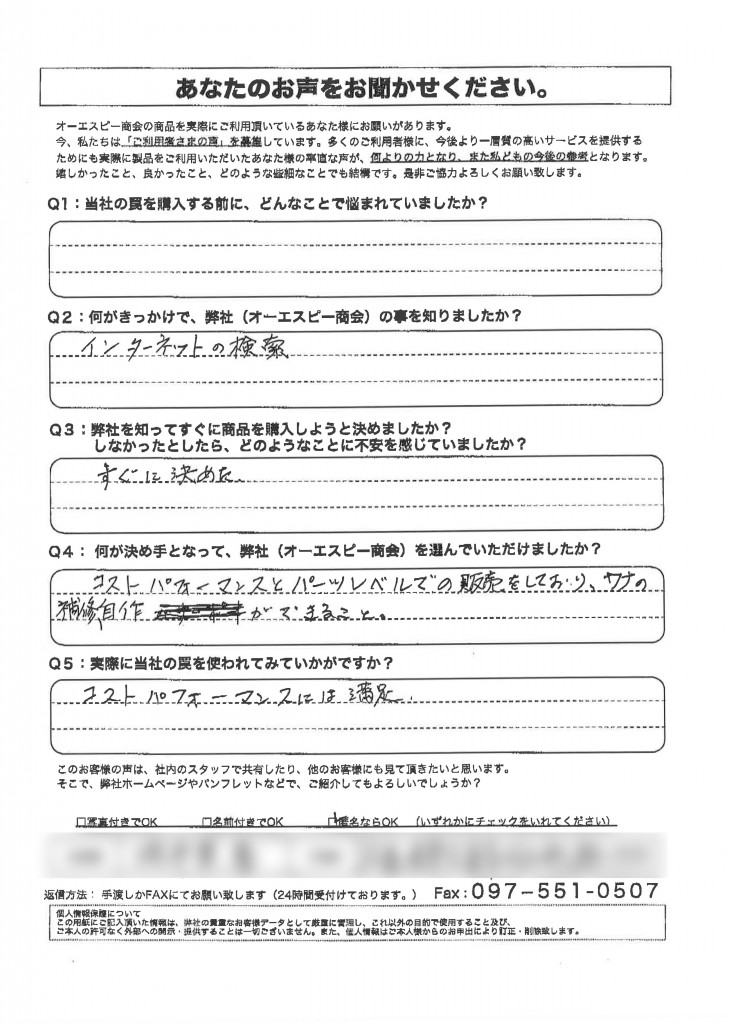 あなたのお声をお聞かせください。
オーエスピー商会の商品を実際にご利用頂いているあなた様にお願いがあります。
今、私たちは「ご利用者さまの声」を募集しています。多くのご利用者様に、今後より一層質の高いサービスを提供する
ためにも実際に製品をご利用いただいたあなた様の率直な声が、何よりの力となり、また私どもの今後の参考となります。
嬉しかったこと、良かったこと、どのような些細なことでも結構です。是非ご協力よろしくお願い致します。
Q1：当社の罠を購入する前に、どんなことで悩まれていましたか？
Q2：何がきっかけで、弊社（オーエスピー商会）の事を知りましたか？
インターネットの検索
Q3：弊社を知ってすぐに商品を購入しようと決めましたか？
しなかったとしたら、どのようなことに不安を感じていましたか？
すぐに決めた。
Q4： 何が決め手となって、弊社（オーエスピー商会）を選んでいただけましたか？
コストパフォーマンスとパーツレベルでの販売をしており、ワナの
補修、自作 ができること。
Q5：実際に当社の罠を使われてみていかがですか？
コストパフォーマンスには満足。
このお客様の声は、社内のスタッフで共有したり、他のお客様にも見て頂きたいと思います。
そこで、弊社ホームページやパンフレットなどで、ご紹介してもよろしいでしょうか？
□写真付きでOK □名前付きでOK □匿名ならOK （いずれかにチェックをいれてください）
返信方法： 手渡しかFAXにてお願い致します（24時間受付けております。） Fax：097-551-0507
個人情報保護について
この用紙にご記入頂いた情報は、弊社の貴重なお客様データとして厳重に管理し、これ以外の目的で使用すること及び、
ご本人の許可なく外部への開示・提供することは一切ございません。また、個人情報はご本人様からのお申出により訂正・削除致します。